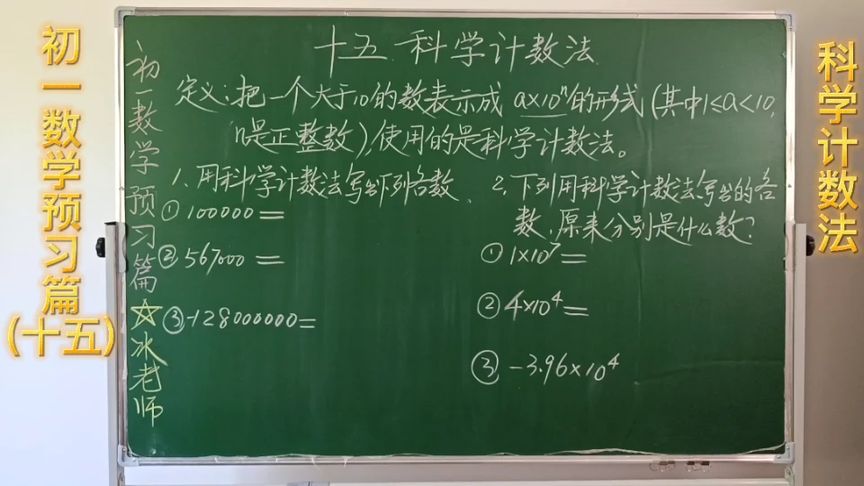 初一数学预习篇
(十五)
科学计数法
初一数学预习篇☆冰老师
十五 科学计数法
定义:把一个大于10的数表示成 a×10ⁿ的形式(其中1≤a<10,
n是正整数),使用的是科学计数法。
1、用科学计数法写出下列各数、
① 100000=
② 567000=
③ -128000000=
2、下列用科学计数法写出的各
数,原来分别是什么数?
① 1×10⁷=
② 4×10⁴=
③ -3.96×10⁴